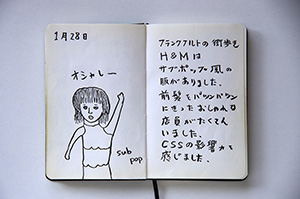 1月28日
オシャレー
sub
pop
フランクフルトの街歩き
H&Mは
サブポップ風の
服がありました。
前髪をパッツンパッツン
にきったおしゃれな
店員がたくさん
いました。
CSSの影響力を
感じました。